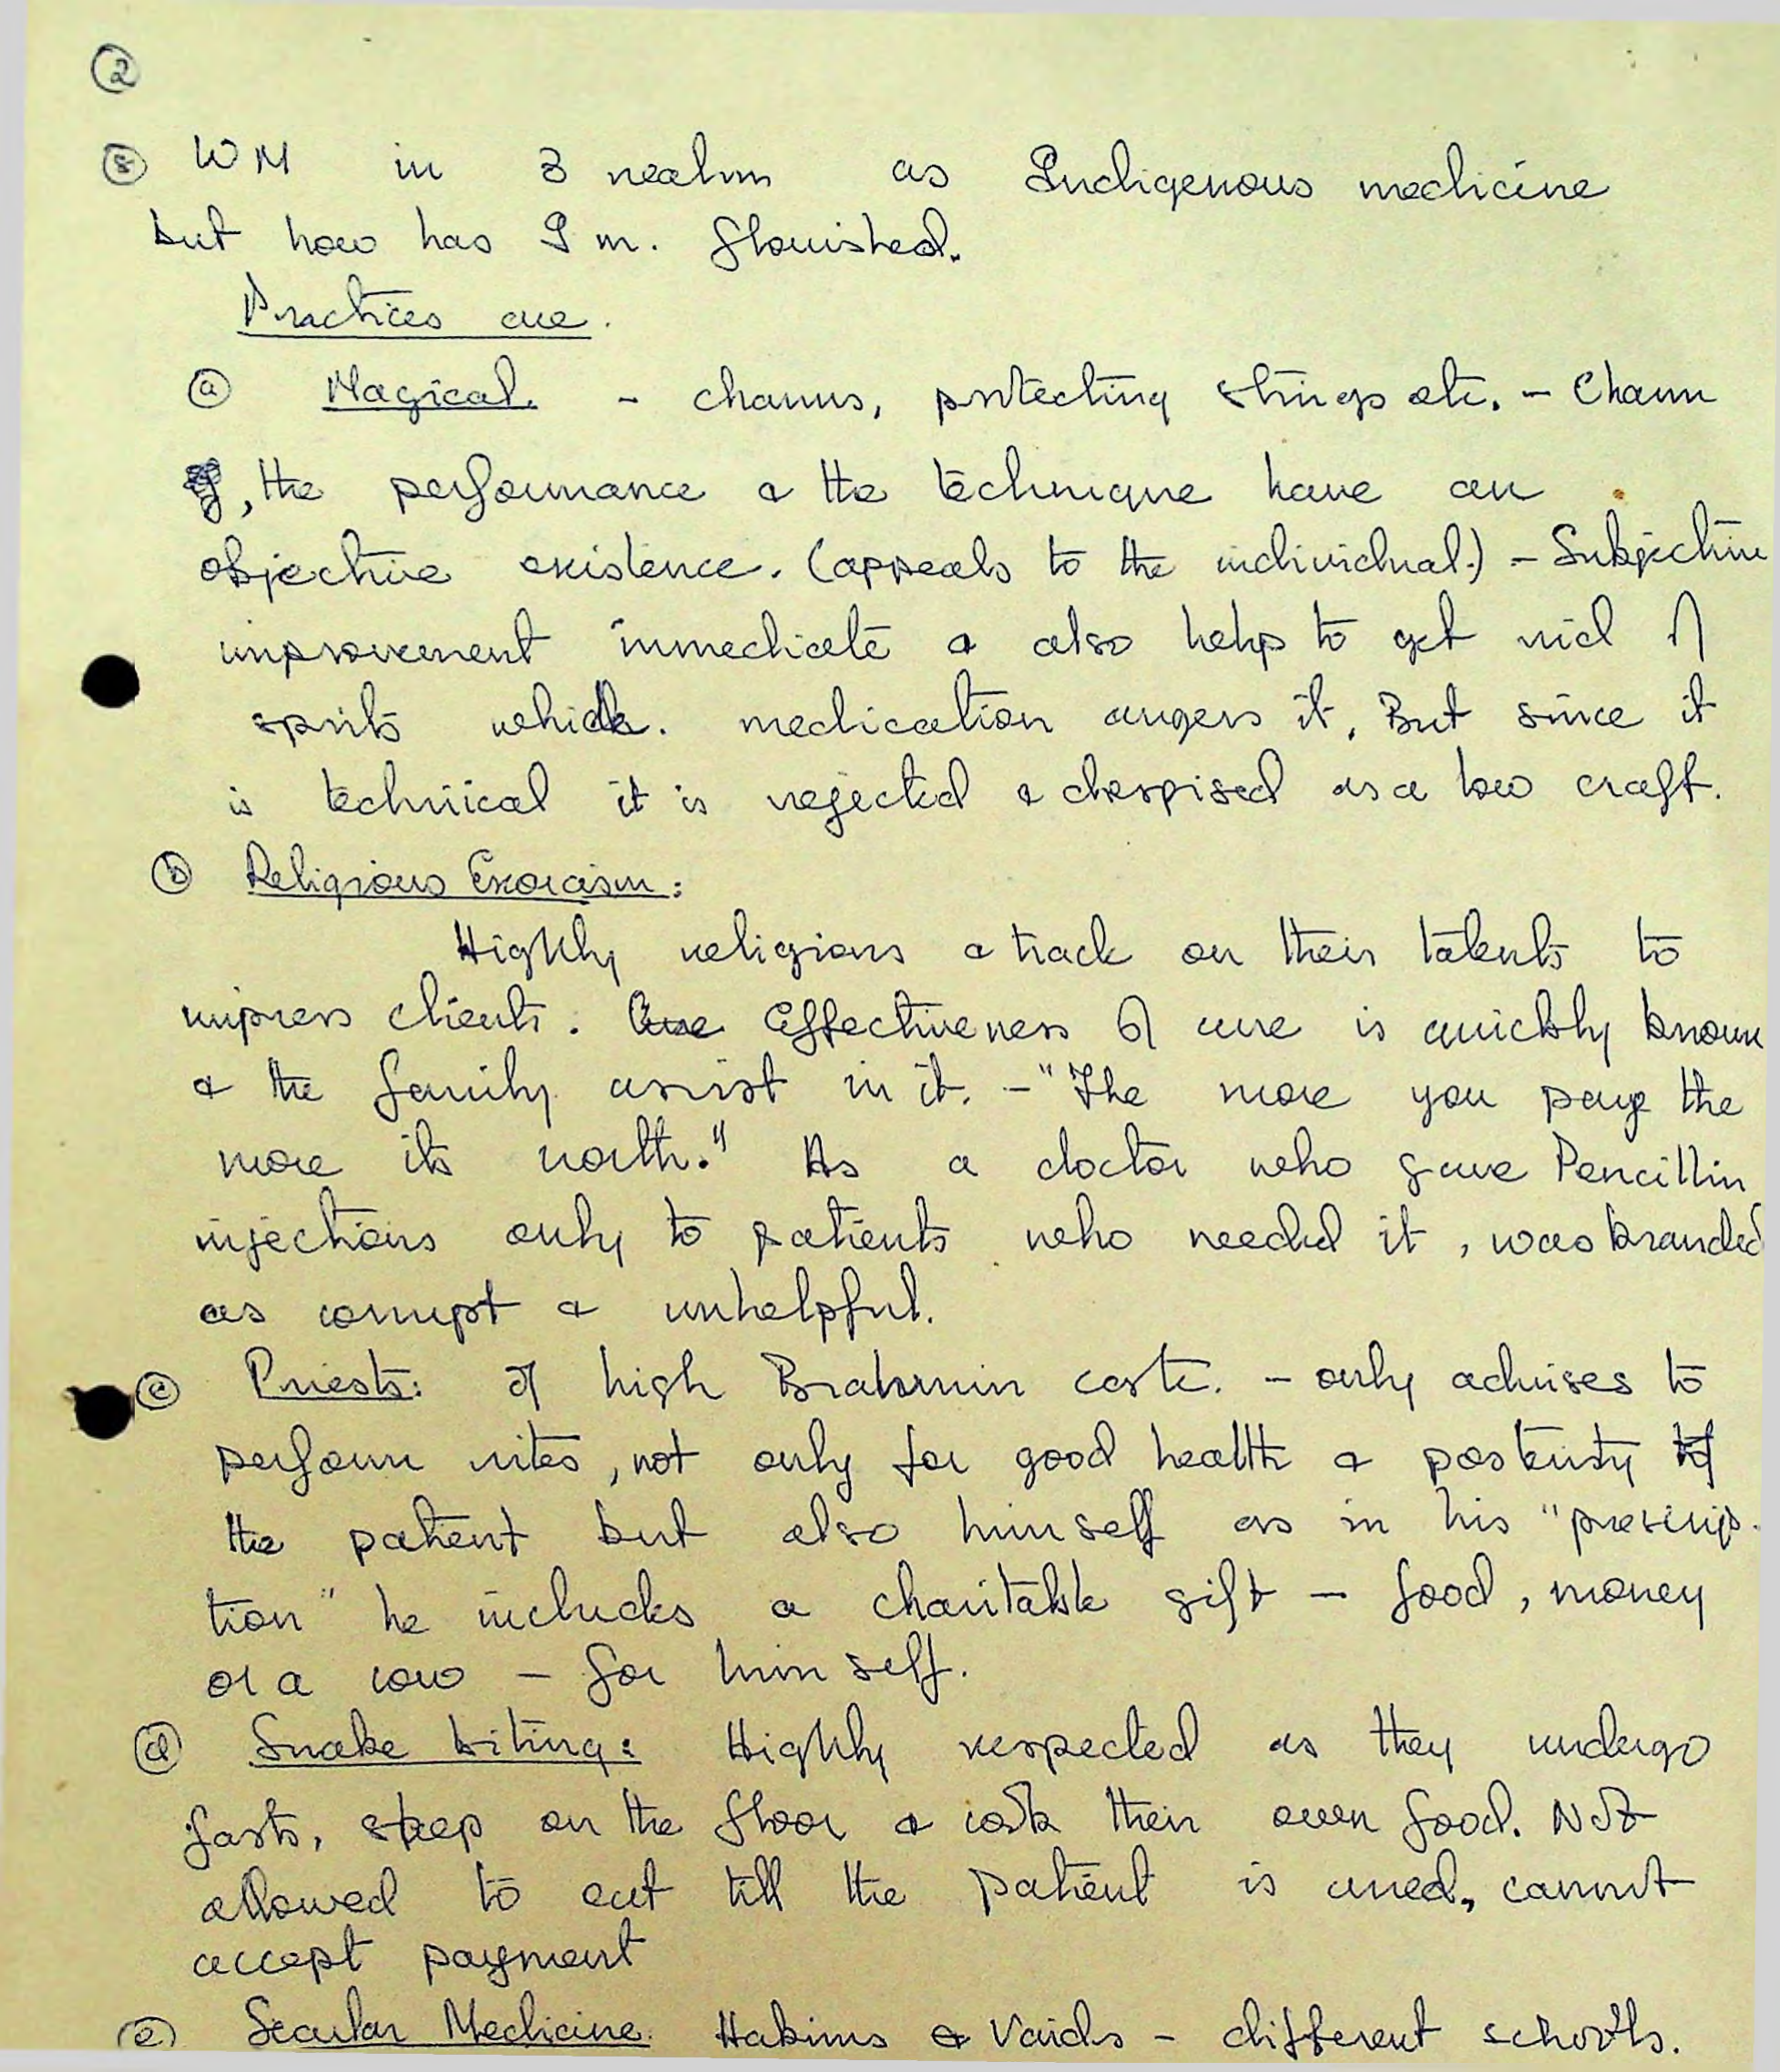 ②
⑧ WM in 3 realm as Indigenous medicine
but how has I m. flouished.
Practices are.
ⓐ Magical. - charms, protecting strings etc. - Charm
, the performance & the technique have an
objective existence. (appeals to the individual.) - Subjective
improvement immediate & also help to get rid of
sprits which. medication angers it. But since it
is technical it is rejected & despised as a low craft.
ⓑ Religious Exorcism:
Highly religious & track on their talents to
impress clients. Cure Effectiveness of cure is quickly known
& the family assist in it. - "The more you pay the
more its worth." As a doctor who gave Pencillin
injections only to patients who needed it, was branded
as corrupt & unhelpful.
ⓒ Priests: of high Brahmin caste. - only advises to
perform rites, not only for good health & posterity of
the patient but also himself as in his "prescrip-
tion" he includes a charitable gift - food, money
or a cow - for himself.
ⓓ Snake biting: Highly respected as they undergo
fasts, sleep on the floor & cook their own food. Not
allowed to eat till the patient is cured, cannot
accept payment
ⓔ Secular Medicine: Hakims & Vaids - different schools.